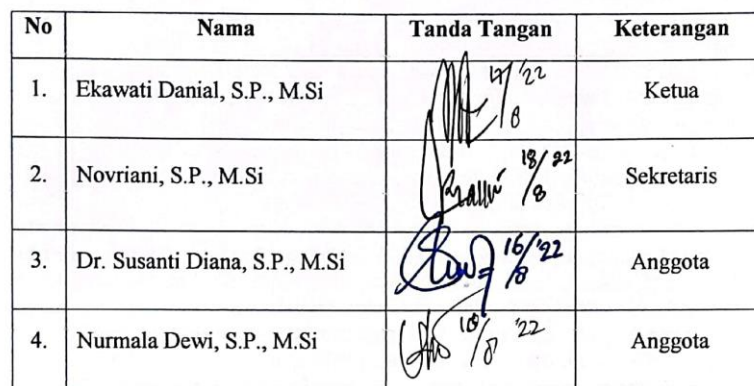 No Nama Tanda Tangan Keterangan
1. Ekawati Danial, S.P., M.Si 17/8 '22 Ketua
2. Novriani, S.P., M.Si 18/8 22 Sekretaris
3. Dr. Susanti Diana, S.P., M.Si 16/8 '22 Anggota
4. Nurmala Dewi, S.P., M.Si '22 Anggota